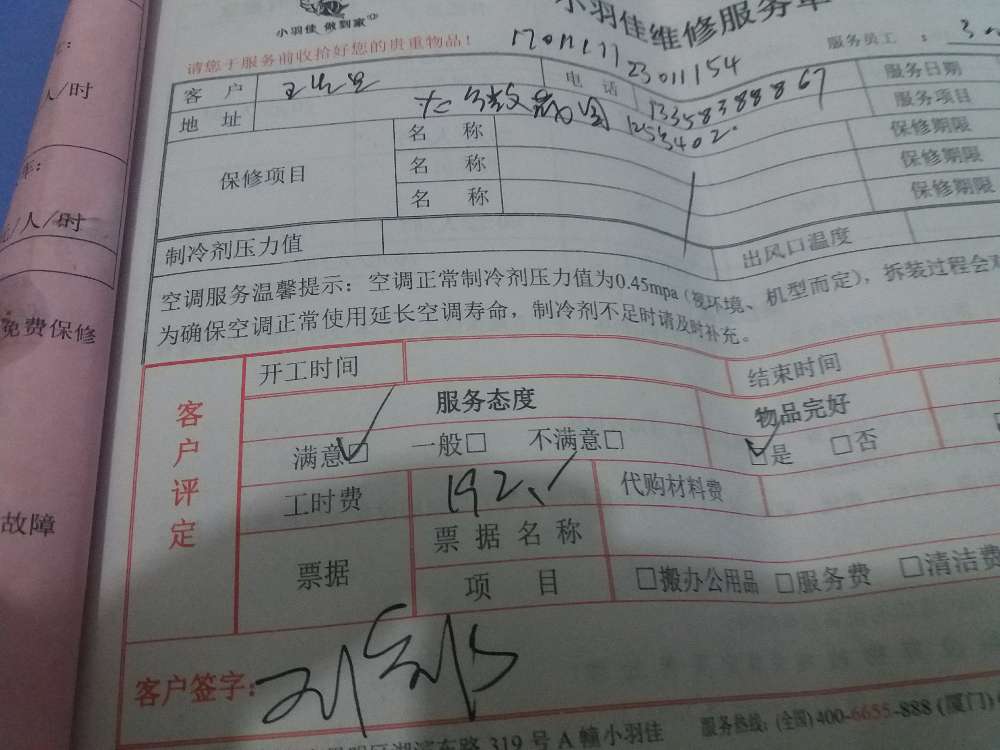 小羽佳 做到家
小羽佳维修服务单
请您于服务前收拾好您的贵重物品！
服务员工：
17011177
23011154
客户 电话 13358388867 服务日期
地址 1253402. 服务项目
保修项目 名称 保修期限
名称 保修期限
名称 保修期限
制冷剂压力值 出风口温度
空调服务温馨提示：空调正常制冷剂压力值为0.45mpa（视环境、机型而定），拆装过程会
为确保空调正常使用延长空调寿命，制冷剂不足时请及时补充。
客户评定
开工时间 结束时间
服务态度 物品完好
满意□ 一般□ 不满意□ □是 □否
工时费 192 代购材料费
票据 票据名称
项目 □搬办公用品 □服务费 □清洁费
客户签字：
湖滨东路 319 号 A 幢小羽佳 服务热线: (全国) 400-6655-888 (厦门)
人/时
/人/时
免费保修
故障